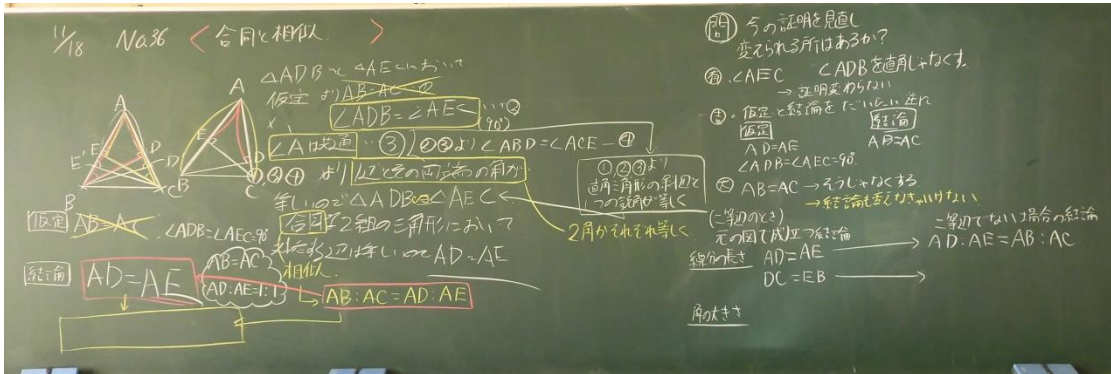 11/18 No.36 < 合同と相似 >
△ADBと△AECにおいて
仮定より AB=AC ①
∠ADB=∠AEC …②
(90°)
∠Aは共通 …③
②③より ∠ABD=∠ACE ー④
①,③,④ より 辺とその両端の角が
等しいので △ADB∽△AEC
合同な2組の三角形において
対応する辺は等しいので AD=AE
①,②,③より
直角三角形の斜辺と
1つの鋭角が等しく
2角がそれぞれ等しく
A
E
D
E'
D
B
C
A
E
D
B
C
仮定 AB=AC
∠ADB=∠AEC=90°
結論 AD=AE
AB=AC
AD:AE=1:1
相似
AB:AC=AD:AE
問 今の証明を見直し
変えられる所はあるか?
∠AEC ∠ADBを直角じゃなくす
→ 証明変わらない
仮定と結論をだいたい逆に
仮定 結論
AD=AE AB=AC
∠ADB=∠AEC=90°
AB=AC → そうじゃなくする
→結論も変えなきゃいけない
(二等辺のとき)
元の図で成立つ結論
二等辺でない場合の結論
線分の長さ AD=AE → AD:AE=AB:AC
DC=EB →
角の大きさ